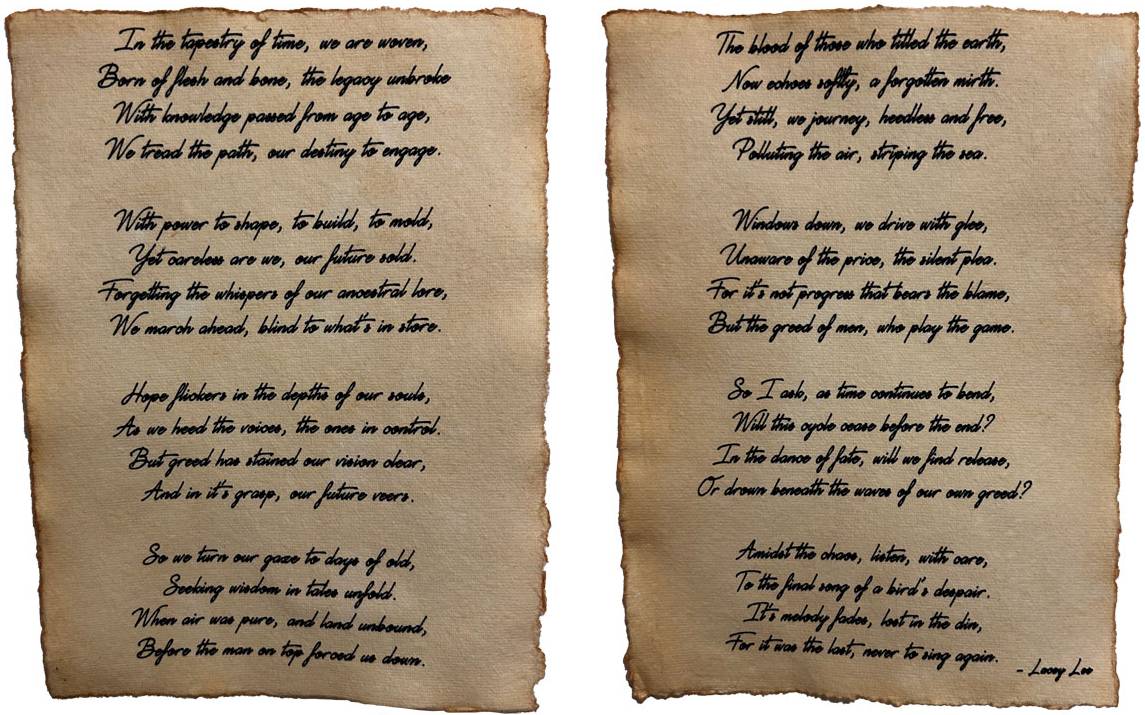 In the tapestry of time, we are woven,
Born of flesh and bone, the legacy unbroke
With knowledge passed from age to age,
We tread the path, our destiny to engage.
With power to shape, to build, to mold,
Yet careless are we, our future sold.
Forgetting the whispers of our ancestral lore,
We march ahead, blind to what's in store.
Hope flickers in the depths of our souls,
As we heed the voices, the ones in control.
But greed has stained our vision clear,
And in it's grasp, our future veers.
So we turn our gaze to days of old,
Seeking wisdom in tales unfold.
When air was pure, and land unbound,
Before the man on top forced us down.
The blood of those who tilled the earth,
Now echoes softly, a forgotten mirth.
Yet still, we journey, heedless and free,
Polluting the air, striping the sea.
Windows down, we drive with glee,
Unaware of the price, the silent plea.
For it's not progress that bears the blame,
But the greed of men, who play the game.
So I ask, as time continues to bend,
Will this cycle cease before the end?
In the dance of fate, will we find release,
Or drown beneath the waves of our own greed?
Amidst the chaos, listen, with care,
To the final song of a bird's despair.
It's melody fades, lost in the din,
For it was the last, never to sing again.
- Lacey Lee